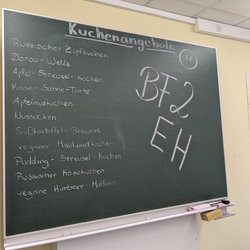 Kuchenangebote
Russischer Zupfkuchen
Donau-Welle
Apfel-Streusel-Kuchen
Käse-Sahne-Torte
Apfelmuskuchen
Nussecken
Süßkartoffel-Brownies
veganer Maulwurfkuchen
Pudding-Streusel-Kuchen
Russischer Käsekuchen
vegane Himbeer-Muffins
BF2
EH